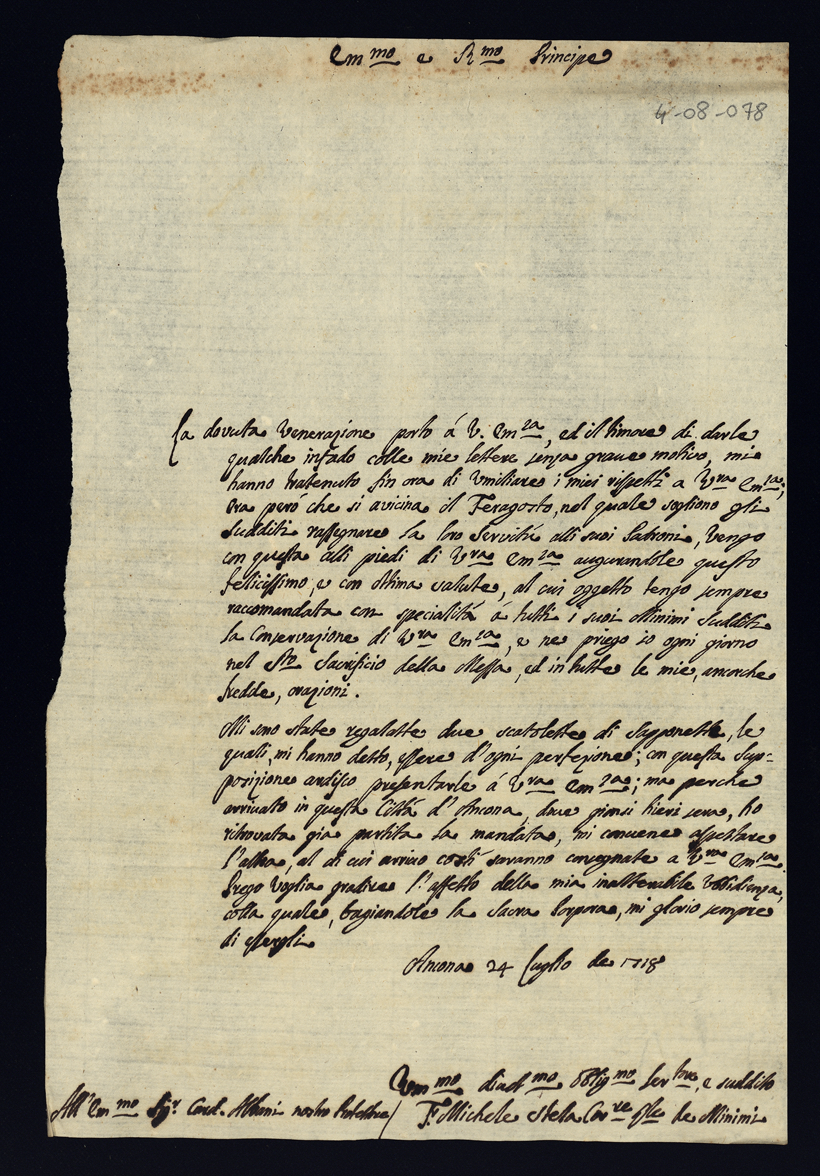 Em.mo e R.mo Principe
4-08-078
La dovuta venerazione porto á V. Em.za, ed il timore di darle
qualche infado colle mie lettere senza grave motivo, mi
hanno tratenuto fin ora di Umiliare i miei rispetti a V.ra Em.za;
Ora peró che si avicina il Feragosto, nel quale sogliono gli
Sudditi rassegnare la loro Servitú alli suoi Padroni, vengo
con questa alli piedi di V.ra Em.za augurandole questo
felicissimo, e con ottima salute, al cui oggetto tengo sempre
raccomandata con specialitá á tutti i suoi Minimi Sudditi
la Conservazione di V.ra Em.za, e ne priego io ogni giorno
nel S.to Sacrificio della Messa, ed in tutte le mie, ancorche
fredde, orazioni.
Mi sono state regalatte due scatolette di Sapponette, le
quali, mi hanno detto, essere d'ogni perfezione; con questa Sup=
posizione ardisco presentarle á V.ra Em.za; ma perche
arrivato in questa Cittá d'Ancona, dove giunsi hieri sera, ho
ritrovata gia partita la mandata, mi conviene aspettare
l'altra, al di cui arrivo costi saranno consegnate a V.ra Em.za.
Prego voglia gradire l'affetto della mia inalterabile Ubbidienza,
colla quale, bagiandole la Sacra Porpora, mi glorio sempre
di essergli
Ancona 24 Luglio de 1718
Um.mo divot.mo obblig.mo ser.tore, e suddito
All'Em.mo Sig.r Card. Albani nostro Protettore /
F. Michele Stela Cor.re g.le de Minimi